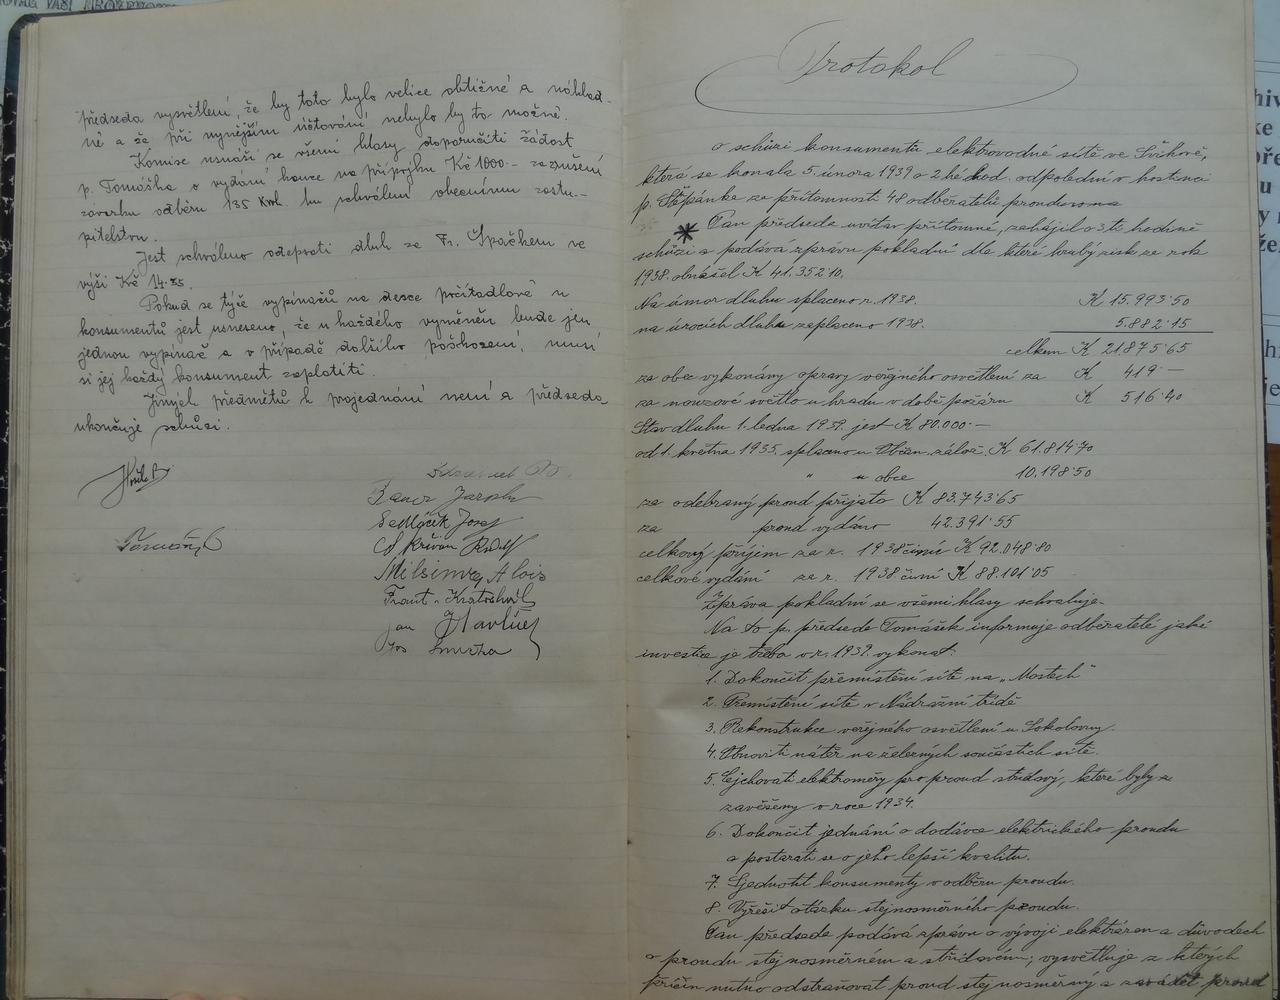 předseda vysvětlení, že by toto bylo velice obtížné a náklad-
né a že při nynějším účtování nebylo by to možné.
Komise usnáší se všemi hlasy doporučiti žádost
p. Tomáška o vydání kauce na přípojku Kč 1000.-
závazku odběru 135 Kwh. ku schválení obecnímu zastu-
pitelstvu.
Jest schváleno odepsati dluh za Fr. Špačkem ve
výši Kč 14.35.
Pokud se týče vypínačů na desce počítadlové u
konsumentů jest usneseno, že u každého vyměněn bude jen
jednou vypínač a v případě dalšího poškození, musí
si jej každý konsument zaplatiti.
Jiných předmětů k projednání není a předseda
ukončuje schůzi.
Jarosl.
Sedláček Josef
Křivan Rudolf
Alois
Frant. Kratochvíl
Jan Havlíček
Jos Smržka
Protokol
o schůzi konsumentů elektrovodné sítě ve Švihově,
která se konala 5. února 1939 o 2 hé hod. odpolední v hostinci
p. Štěpánka za přítomnosti 48 odběratelů proudu
* Pan předseda uvítav přítomné, zahájil o 3 té hodině
schůzi a podává zprávu pokladní dle které hrubý zisk za rok
1938. obnášel K 41.352·10.
Na úmor dluhu splaceno r. 1938. K 15.993·50
na úrocích dluhu zaplaceno 1938. 5.882·15
celkem K 21.875·65
za obec vykonány opravy veřejného osvětlení za K 419·—
za nouzové světlo u hradu v době požáru K 516·40
Stav dluhu 1. ledna 1939. jest K 80.000·—
od 1. května 1935. splaceno u Občan. zálož. K 61.814·70
" u obce 10.198·50
za odebraný proud přijato K 83.743·65
za proud vydáno 42.391·55
celkový příjem za r. 1938 činí K 92.048·80
celkové vydání za r. 1938 činí K 88.101·05
Zpráva pokladní se všemi hlasy schvaluje.
Na to p. předseda Tomášek informuje odběratelé jaké
investice je třeba v r. 1939. vykonat:
1. Dokončit přemístění sítě na „Mostech"
2. Přemístění sítě v Nádražní třídě
3. Rekonstrukce veřejného osvětlení u Sokolovny.
4. Obnoviti nátěr na železných součástích sítě.
5. Cejchovati elektroměry pro proud střídavý, které byly
zavěšeny v roce 1934.
6. Dokončit jednání o dodávce elektrického proudu
a postarati se o jeho lepší kvalitu.
7. Sjednotit konsumenty v odběru proudu.
8. Vyřešit otázku stejnosměrného proudu.
Pan předseda podává zprávu o vývoji elektráren a důvodech
o proudu stejnosměrném a střídavém; vysvětluje z kterých
příčin nutno odstraňovat proud stejnosměrný a zavádět proud